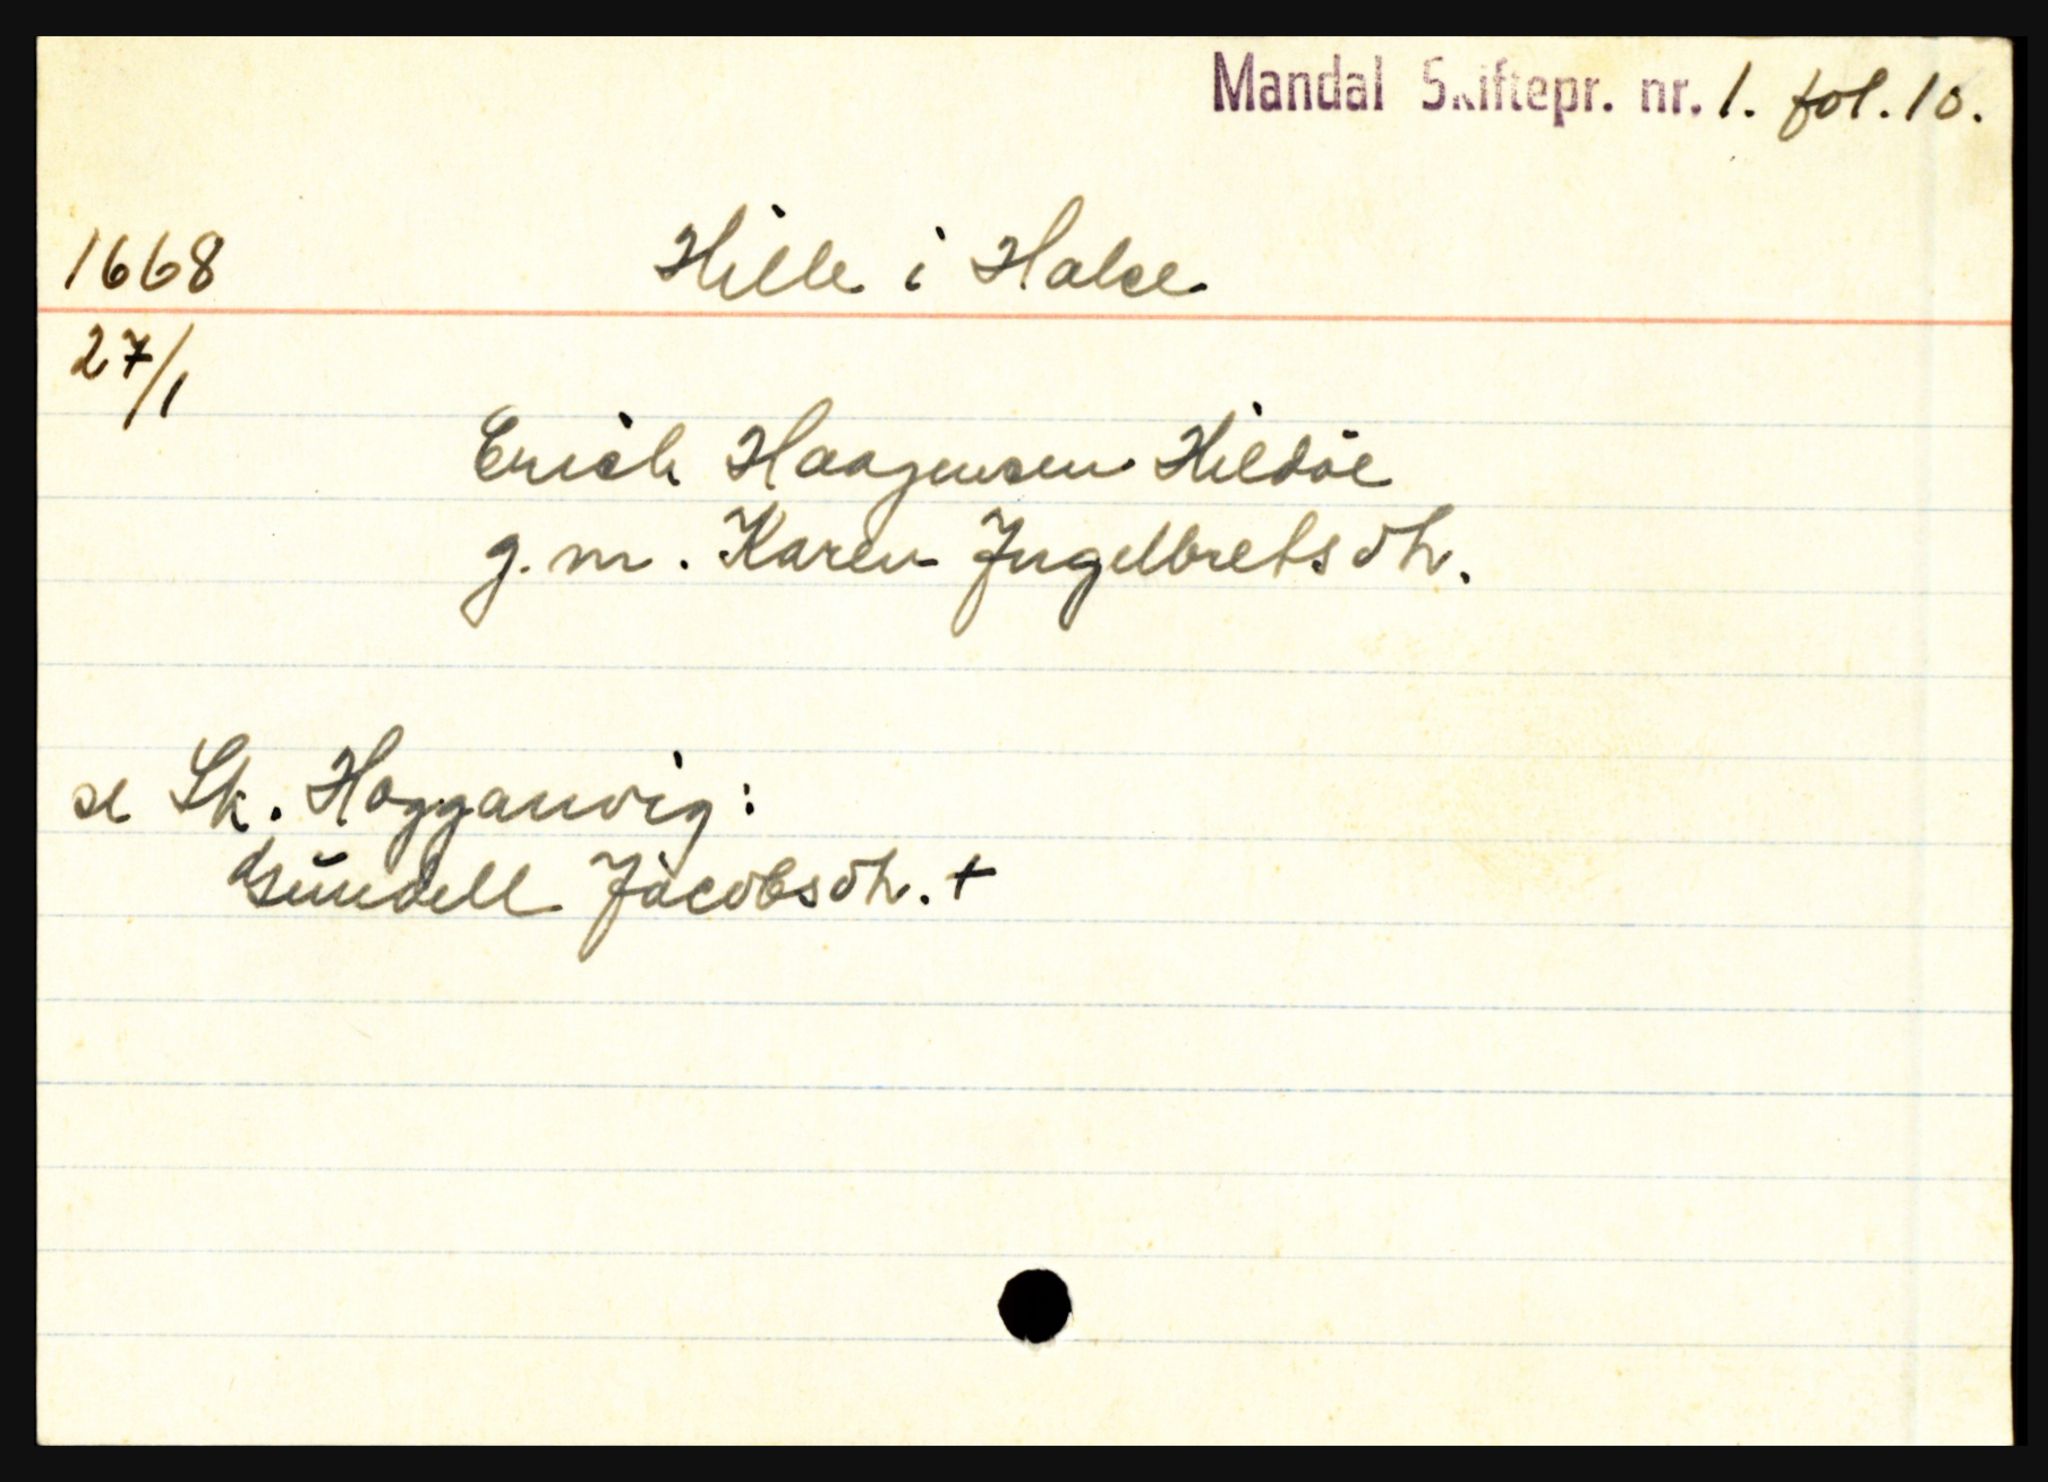 Mandal Skiftepr. nr. 1. fol. 10.
1668 Hille i Halse
27/1
Erich Haagensen Hildøe
g.m. Karen Ingelbretsdtr.
se Sk. Hogganvig:
Gundell Jacobsdtr. +